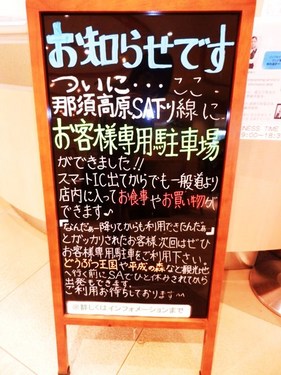 お知らせです
ついに・・・ここ、
那須高原SA下り線に
お客様専用駐車場
ができました!!
スマートIC出てからでも一般道より
店内に入ってお食事やお買い物が
できます♪
「なんだぁー降りてからも利用できたんだぁー」
とガッカリされたお客様、次回はぜひ
お客様専用駐車をご利用下さい。
どうぶつ王国や平成の森など観光地
へ行く前にSAでひと休みされてから
出発もできます。
ご利用お待ちしております〜
※詳しくはインフォメーションまで